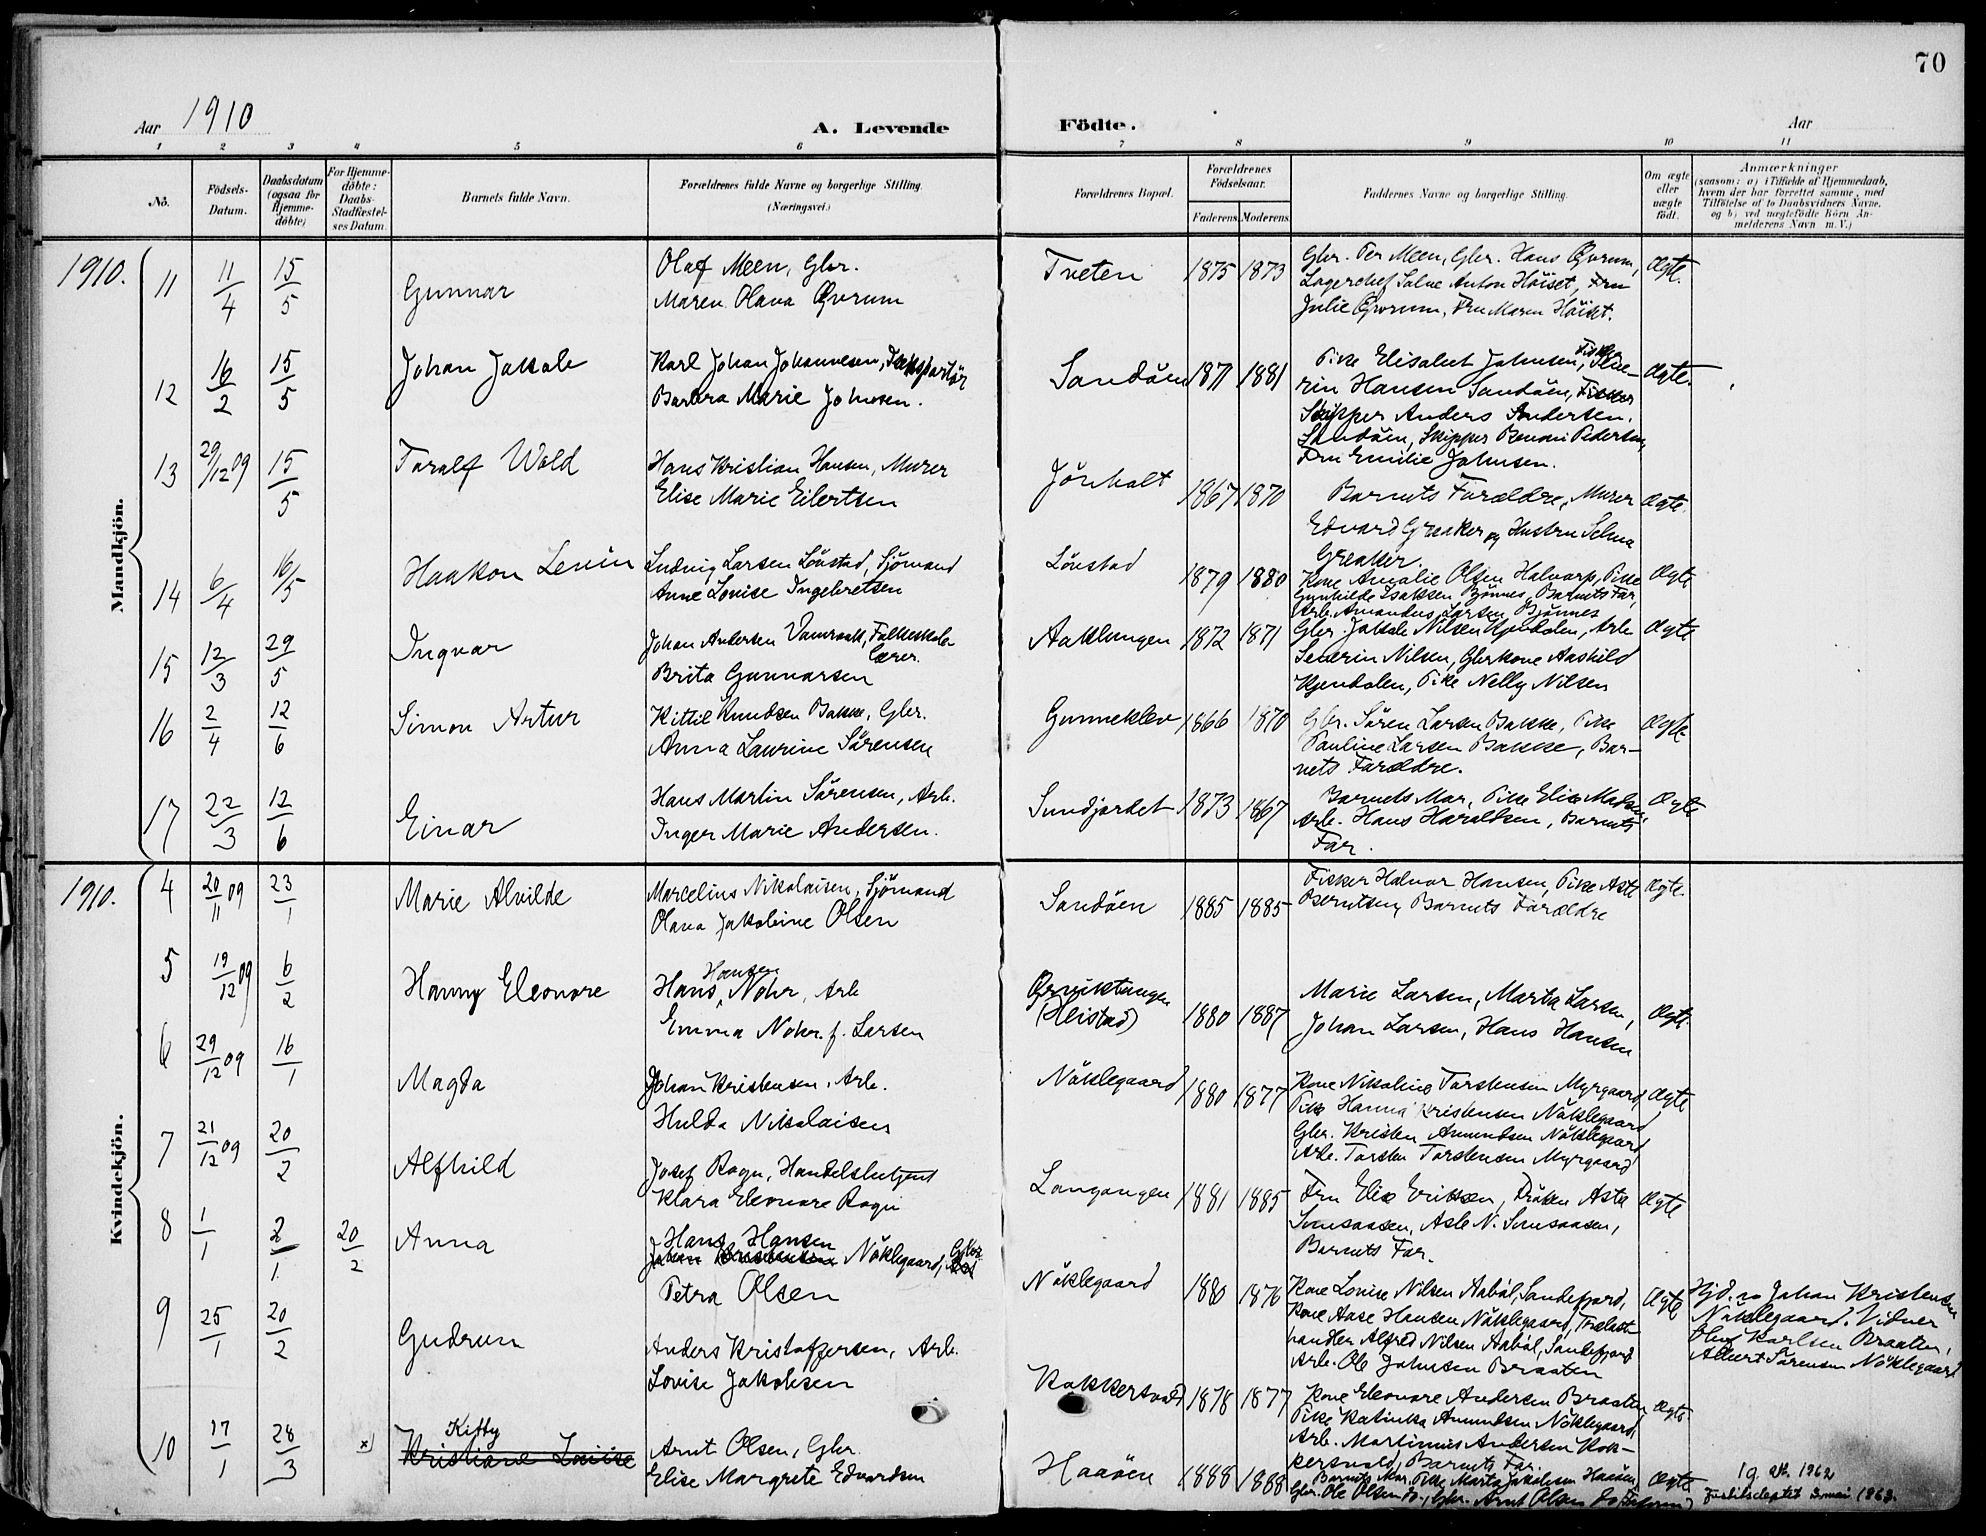 70
Aar 1910
A. Levende
Födte.
Aar
1 2 3 4 5 6 7 8 9 10 11
No.
Födsels-Datum.
Daabsdatum (ogsaa for Hjemme-döbte)
For Hjemme-döbte: Daabs-Stadfæstel-ses Datum.
Barnets fulde Navn.
Forældrenes fulde Navne og borgerlige Stilling.
(Næringsvei.)
Forældrenes Bopæl.
Forældrenes Födselsaar.
Faderens. Moderens.
Faddernes Navne og borgerlige Stilling.
Om ægte eller uægte födt.
Anmærkninger
(saasom: a) i Tilfælde af Hjemmedaab,
hvem der har forrettet samme, med
Tilföielse af to Daabsvidners Navne,
og b) ved uægtefödte Börn An-
melderens Navn m. V.)
Mandkjön.
1910. 11 11/4 15/5 Gunnar
Olaf Meen, Gbr.
Maren Olava Øvrum
Tveten 1875 1873
Gbr. Per Meen, Gbr. Hans Øvrum,
Lagerchef Salve Anton Höiset, Fru
Julie Øvrum, Fru Maren Höiset.
Ægte.
12 16/2 15/5 Johan Jakob
Karl Johan Johannesen,
Barbra Marie Johnsen.
Sandöen 1871 1881
Pike Elisabet Johnsen, Fisker
rin Hansen Sandöen,
Skipper Anders Andersen
Sandöen, Skipper Benoni Pedersen,
Fru Emilie Johnsen.
Ægte.
13 29/12 09 15/5 Toralf Wold
Hans Kristian Hansen, Murer
Elise Marie Eilertsen
Jönholt 1867 1870
Barnets Forældre, Murer
Edvard Greaker og Hustru Selma
Greaker.
Ægte.
14 6/4 16/5 Haakon Levin
Ludvig Larsen Lönstad, Sjömand
Anne Lovise Ingebretsen
Lönstad 1879 1880
Kone Amalie Olsen Halvarp, Pike
Gunhilde Isaksen Bjönnes, Barnets Far,
Arb. Amandus Larsen Bjönnes
Ægte
15 12/3 29/5 Ingvar
Johan Andersen, Folkeskole-
lærer.
Brita Gunnarsen
Aaklungen 1872 1871
Gbr. Jakob Nilsen Kjendalen, Arb.
Severin Nilsen, Gbrkone Aashild
Kjendalen, Pike Nelly Nilsen
Ægte
16 2/4 12/6 Simon Artur
Kittil Knudsen Bakke, Gbr.
Anna Laurine Sörensen
Gunneklev 1866 1870
Gbr. Sören Larsen Bakke, Pike
Pauline Larsen Bakke, Bar-
nets Forældre.
Ægte
17 22/3 12/6 Einar
Hans Martin Sörensen, Arb.
Inger Marie Andersen.
Sundjordet 1873 1867
Barnets Mor, Pike Elise Madsen,
Arb. Hans Haraldsen, Barnets
Far.
Ægte
Kvindekjön.
1910. 4 20/11 09 23/1 Marie Alvilde
Marcelius Nikolaisen, Sjömand
Olava Jakobine Olsen
Sandöen 1885 1885
Fisker Halvor Hansen, Pike Asta
Berntsen, Barnets Forældre
Ægte.
5 19/12 09 6/2 Hanny Eleonore
Hansen
Hans Nohr, Arb
Emma Nohr f. Larsen
Ørviktangen
(Heistad) 1880 1887
Marie Larsen, Marta Larsen,
Johan Larsen, Hans Hansen
Ægte.
6 29/12 09 16/1 Magda
Johan Kristensen, Arb.
Hulda Nikolaisen
Nöklegaard 1880 1877
Kone Nikoline Torstensen Myrgaard,
Pike Hanna Kristensen Nöklegaard
Gbr. Kristen Amundsen Nöklegaard
Arb. Torsten Torstensen Myrgaard
Ægte
7 21/12 09 20/2 Alfhild
Josef Rogn, Handelsbetjent
Klara Eleonore Rogn
Langangen 1881 1885
Fru Elise Eriksen, Fröken Asta
Barnets Far.
Ægte
8 1/1 2/1 20/2 Anna
Hans Hansen
Johan Kristensen Nöklegaard, Gbr
Petra Olsen
Nöklegaard 1880 1876
Kone Lovise Nilsen Aaböl, Sandefjord,
Kone Aase Hansen Nöklegaard, Trælast-
handler Alfred Nilsen Aaböl, Sandefjord
Arb. Ole Johnsen Braaten
Ægte
Hjd. av Johan Kristensen
Nöklegaard. Vidner
Olaf Karlsen Braaten,
Albert Sörensen Nöklegaard
9 25/1 20/2 Gudrun
Anders Kristoffersen, Arb.
Lovise Jakobsen
Kokkersvold 1878 1877
Kone Eleonore Andersen Braaten
Pike Katinka Amundsen Nöklegaard,
Arb. Martinius Andersen Kok-
kersvold, Barnets Far.
Ægte
10 17/1 28/3 x) Kitty
Kristiane Louise
Arnt Olsen, Gbr.
Elise Margrete Edvardsen
Haaöen 1888 1888
Barnets Mor, Pike Marta Jakobsen Haaöen
Gbr. Ole Olsen do., Gbr. Arnt Olsen do
Ægte
1962
1963.